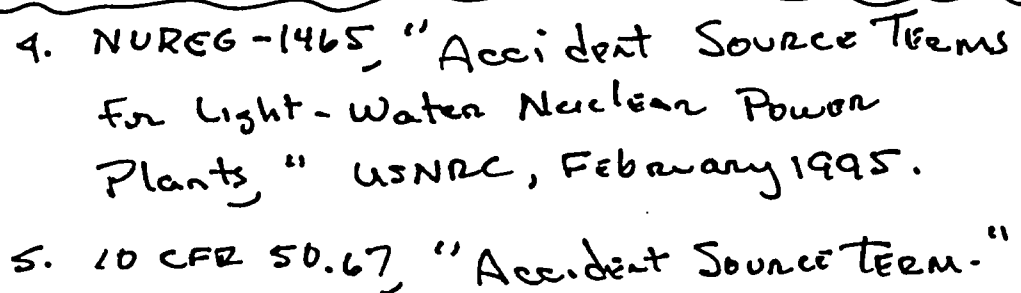 4. NUREG-1465, "Accident Source Terms
for Light-Water Nuclear Power
Plants," USNRC, February 1995.
5. 10 CFR 50.67, "Accident Source Term."